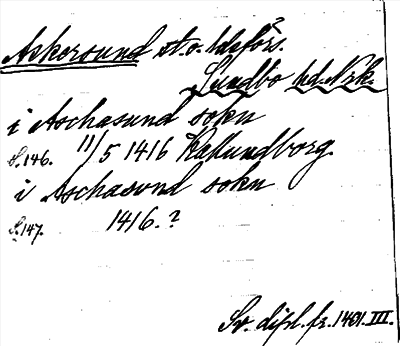 Askersund st. o. ldsförs.
Sundbo hd. Nrk.
i Aschasund sokn
S. 146. 11/5 1416 Kallundborg.
i Aschasund sokn
S. 147. 1416. ?
Sv. dipl. fr. 1401. III.